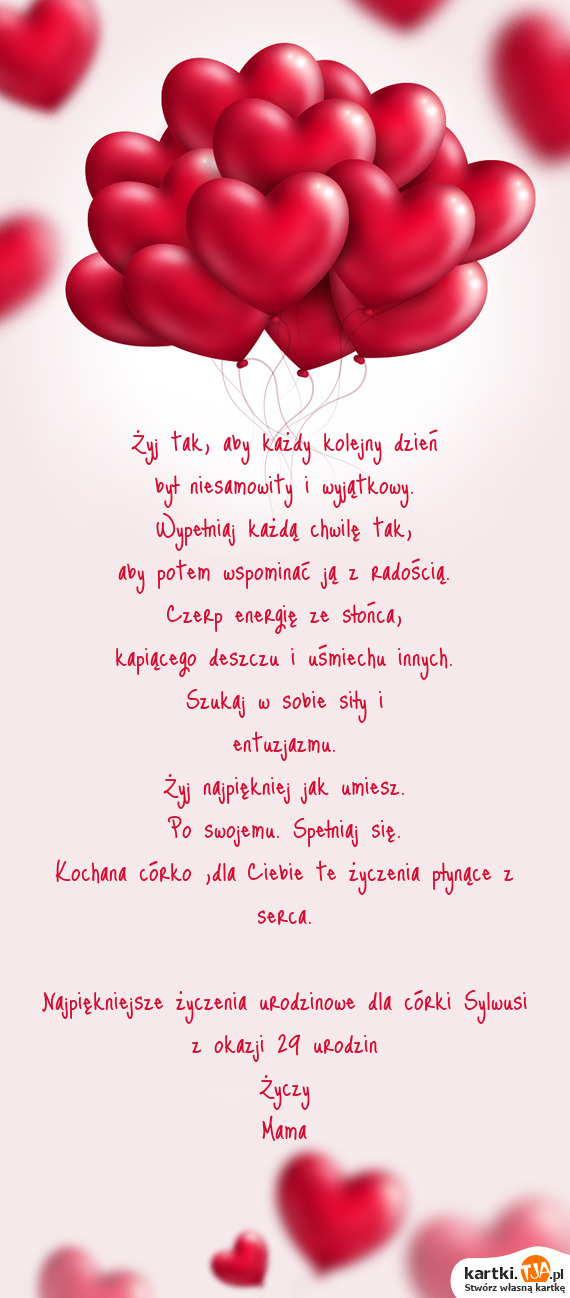 Żyj tak, aby każdy kolejny dzień
był niesamowity i wyjątkowy.
Wypełniaj każdą chwilę tak,
aby potem wspominać ją z radością.
Czerp energię ze słońca,
kapiącego deszczu i uśmiechu innych.
Szukaj w sobie siły i
entuzjazmu.
Żyj najpiękniej jak umiesz.
Po swojemu. Spełniaj się.
Kochana córko ,dla Ciebie te życzenia płynące z
serca.
Najpiękniejsze życzenia urodzinowe dla córki Sylwusi
z okazji 29 urodzin
Życzy
Mama
kartki.TJA.pl
Stwórz własną kartkę